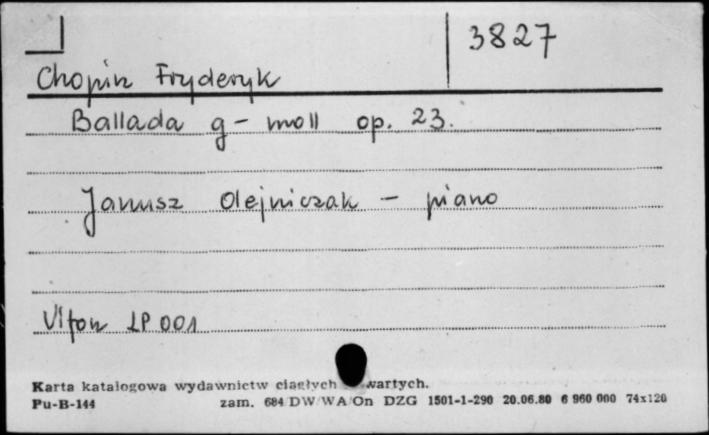 3827
Chopin Fryderyk
Ballada g-moll op. 23.
Janusz Olejniczak - piano
Vifon LP 001
Karta katalogowa wydawnictw ciągłych wartych.
Pu-B-144 zam. 684/DW/WA/On DZG 1501-1-290 20.06.80 6 960 000 74x120